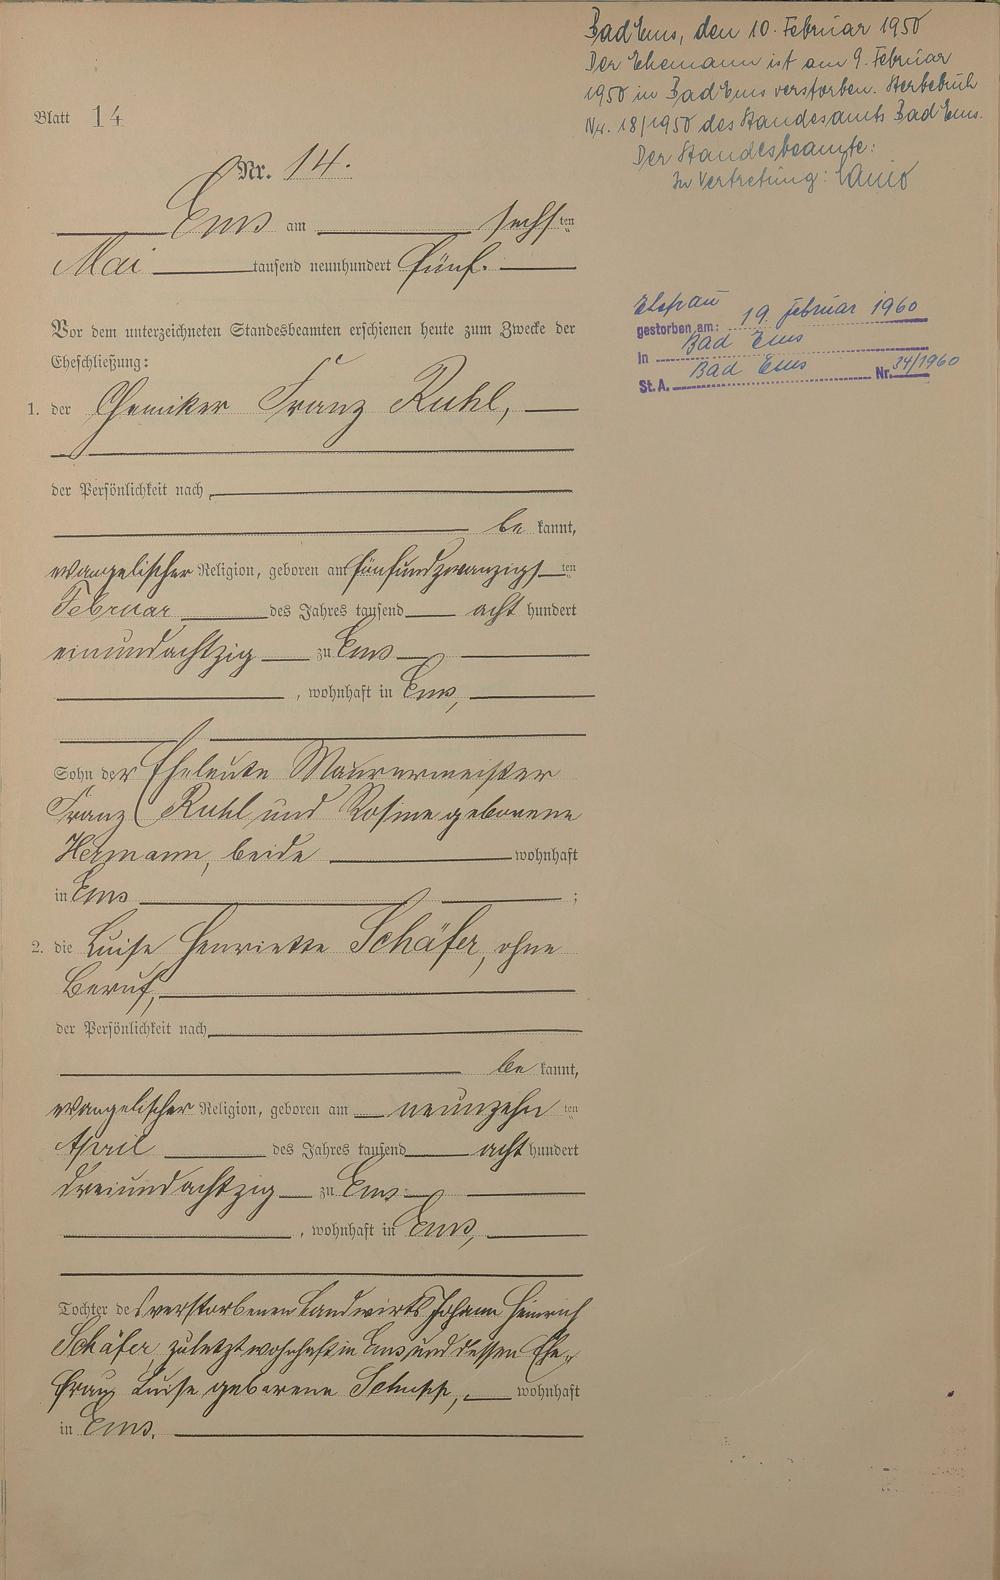 Bad Ems, den 10. Februar 1950
Der Ehemann ist am 9. Februar
1950 in Bad Ems verstorben. Sterbebuch
Nr. 18/1950 des Standesamts Bad Ems.
Der Standesbeamte:
In Vertretung:
Blatt 14
Nr. 14.
Ems am sechsten
Mai tausend neunhundert fünf.
Ehefrau
gestorben am: 19. Februar 1960
In Bad Ems
St. A. Bad Ems Nr. 34/1960
Vor dem unterzeichneten Standesbeamten erschienen heute zum Zwecke der
Eheschließung:
1. der Chemiker Franz Ruhl,
der Persönlichkeit nach
be kannt,
evangelischer Religion, geboren am fünfundzwanzigsten
Februar des Jahres tausend acht hundert
einundachtzig zu Ems
, wohnhaft in Ems,
Sohn der Eheleute Maurermeister
Franz Ruhl und Rosine geborene
Hermann, beide wohnhaft
in Ems ;
2. die Luise Henriette Schäfer, ohne
Beruf,
der Persönlichkeit nach
be kannt,
evangelischer Religion, geboren am neunzehn ten
April des Jahres tausend acht hundert
dreiundachtzig zu Ems
, wohnhaft in Ems,
Tochter des verstorbenen Landwirts Johann Heinrich
Schäfer, zuletzt wohnhaft in Ems und dessen Ehe-
frau Luise geborene Schupp, wohnhaft
in Ems.